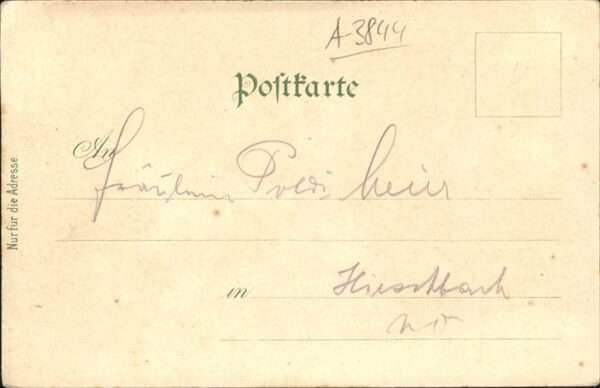 A-3844
Postkarte
An
Fräulein Poldi Heur
in Hirschbach
Nur für die Adresse